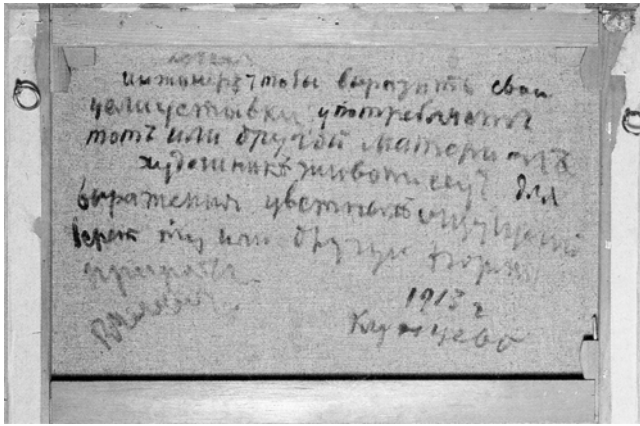 инжинеръ чтобы выразить свои
цели употребляетъ
тотъ или другой матери
художникъ живописец для
выражения цветных ощущений
ту или другую форму
природы
1913 г
Кунцево